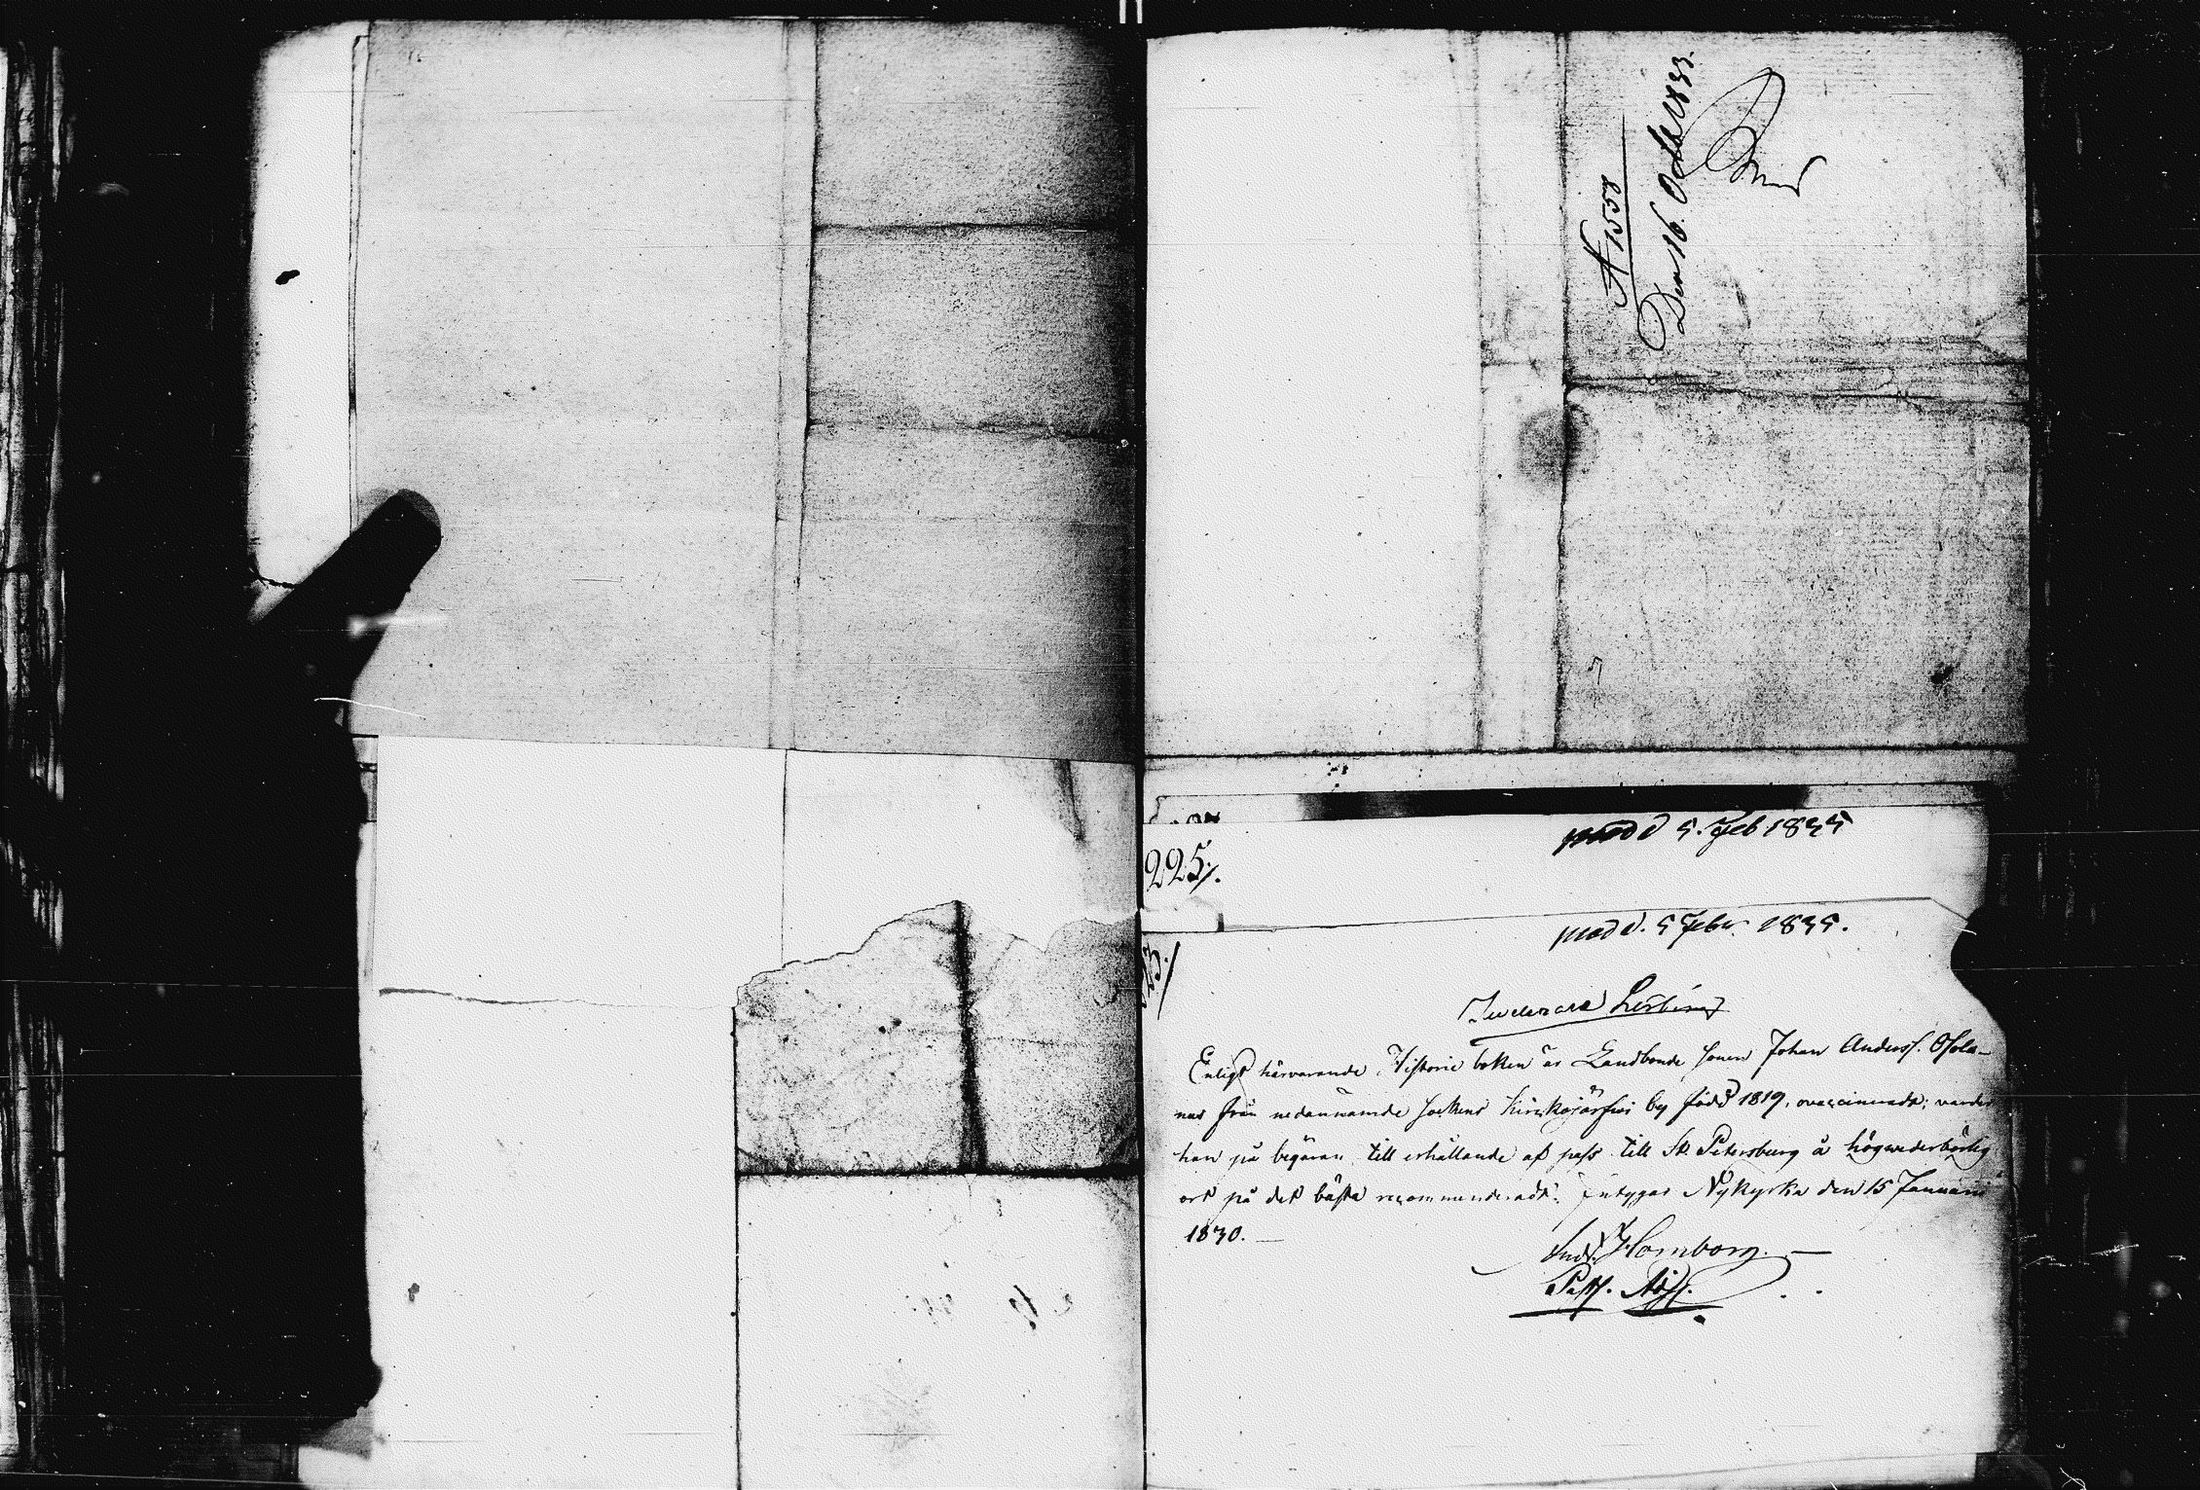 N 1558
Den 16. Octob 1833.
prod d 5. Feb 1835
225/.
prod d. 5 Febr. 1835.
23./
Enligt härvarande Historie boken är Landbonde sonen Johan Anderss.
nus från nedannämde Sockens Kirkkojärfwi by född 1819, ovaccinerad; varder
han på begäran till erhållande af pass till St. Petersburg å högvederbörlig
ort på det bästa recommenderad. Intygar Nykyrka den 15 Januarii
1830. —
And. Homborg. —
Past. Adj.